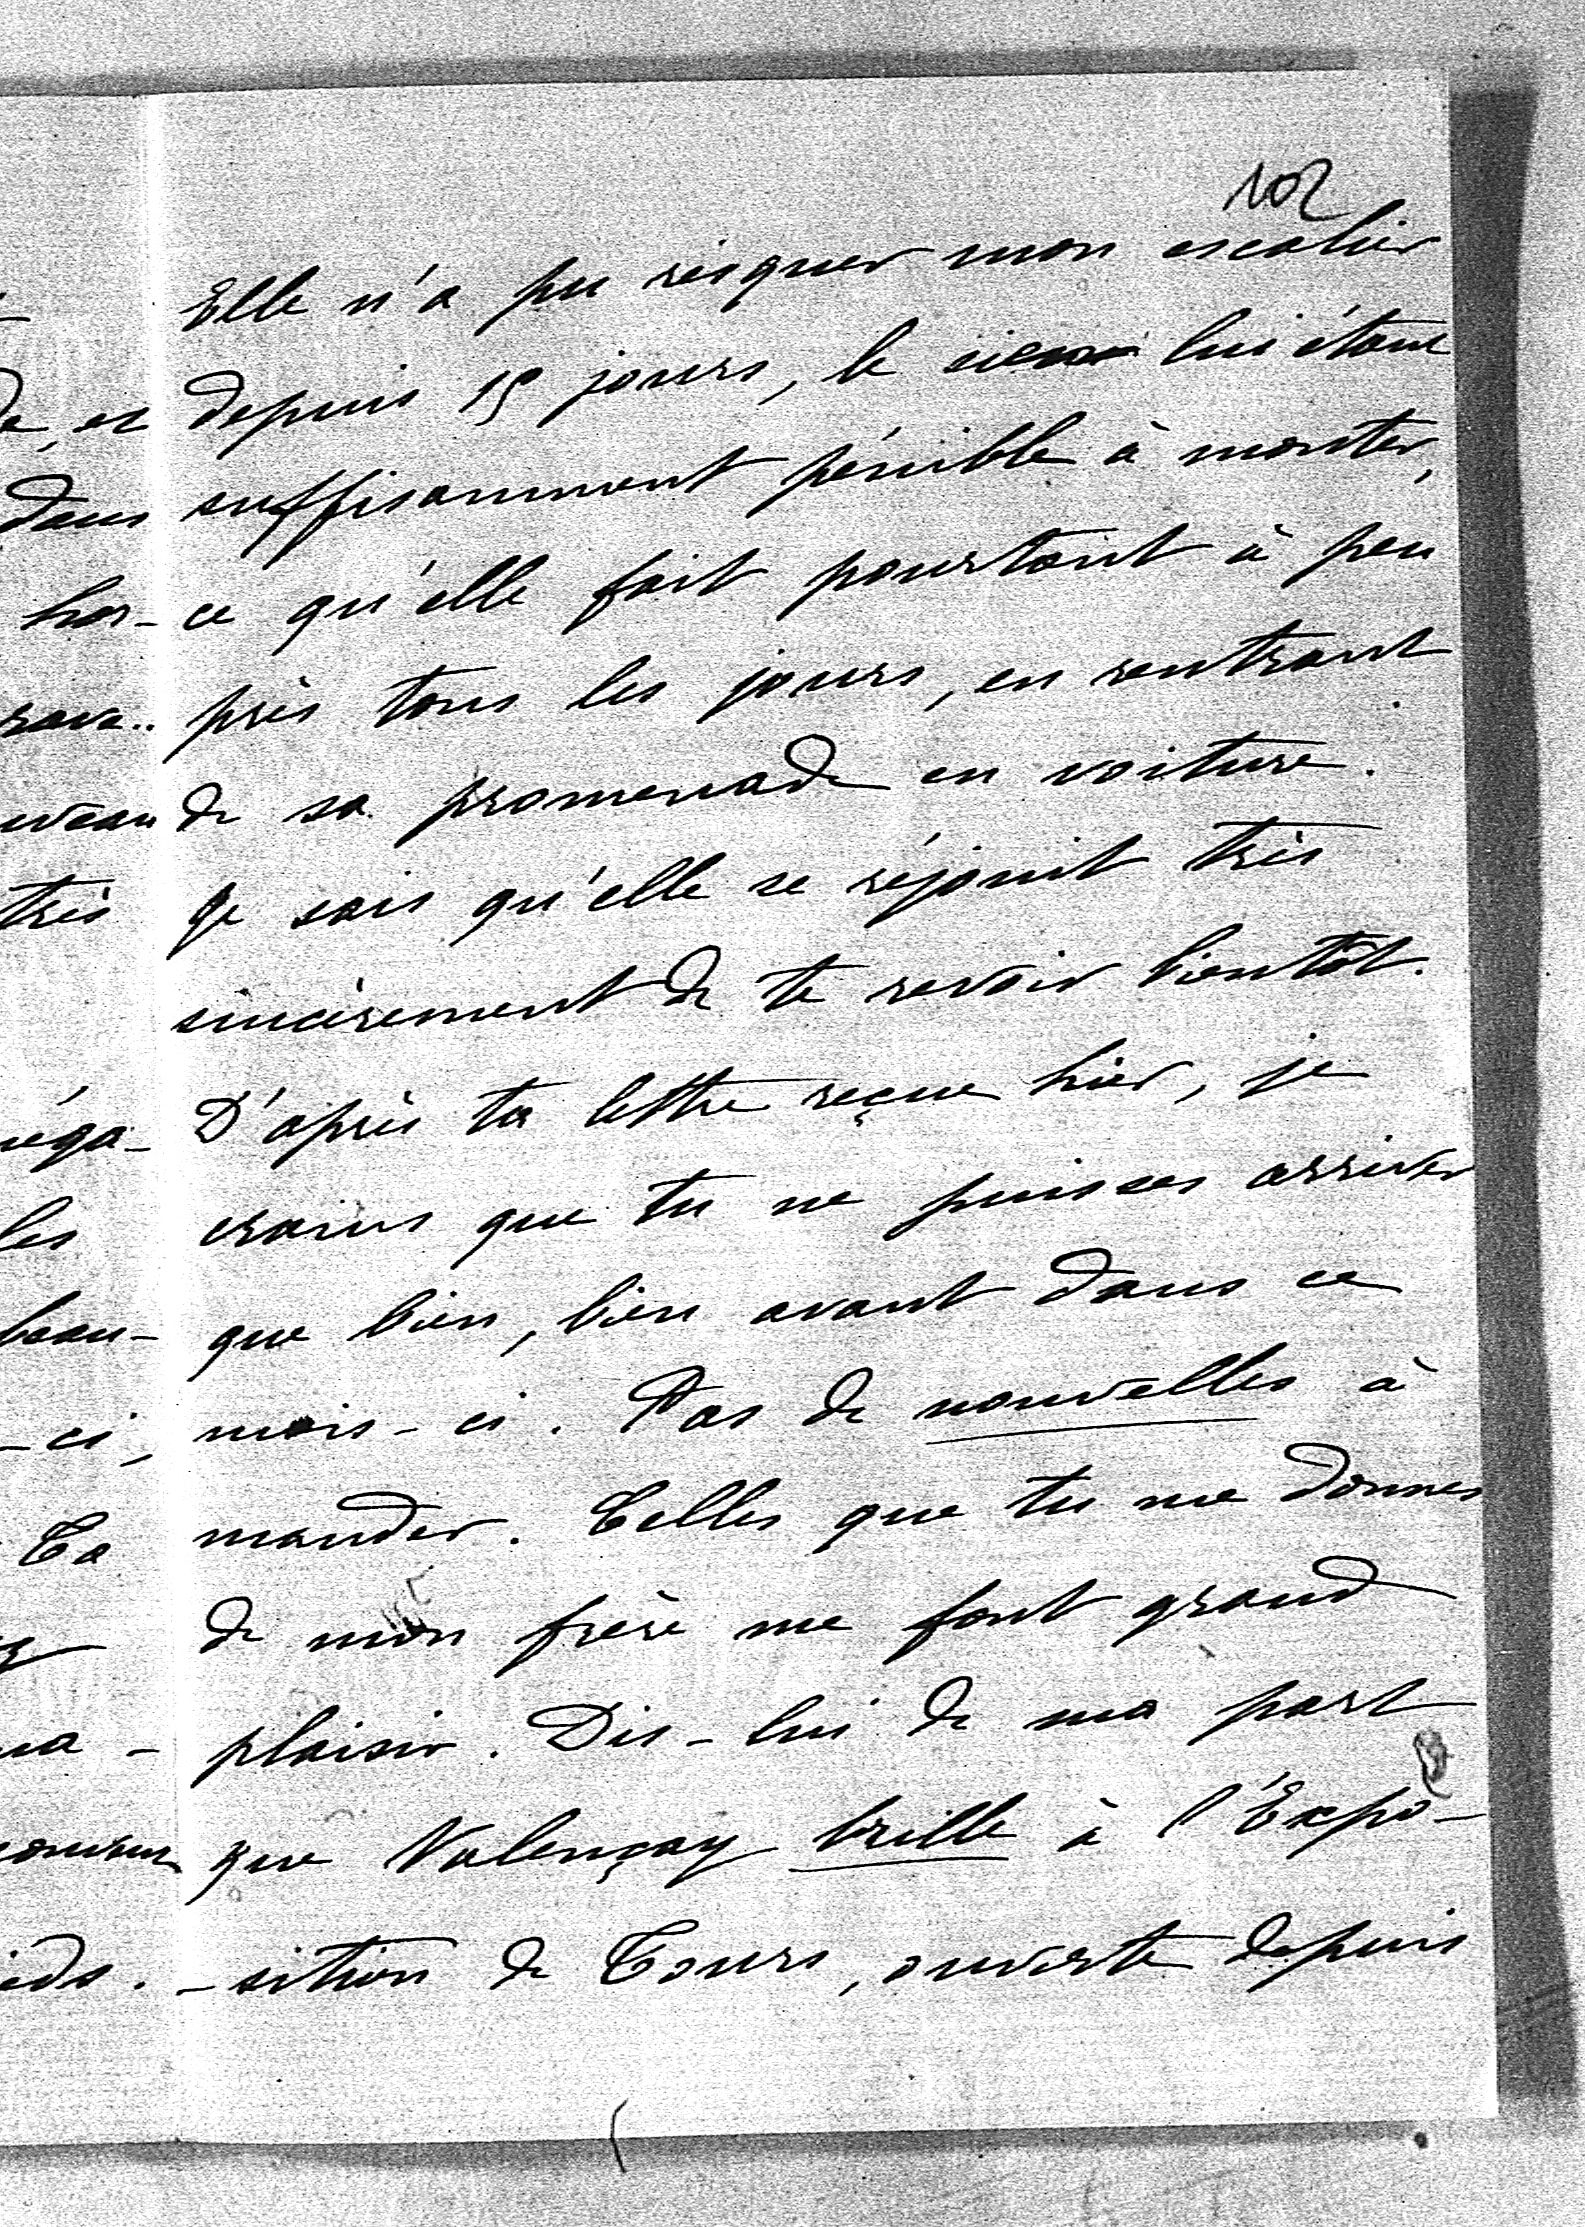 102
Elle n'a pu risquer mon escalier
depuis 15 jours, le sien lui étant
suffisamment pénible à monter,
ce qu'elle fait pourtant à peu
près tous les jours, en rentrant
de sa promenade en voiture.
Je sais qu'elle se réjouit très
sincèrement de te revoir bientôt.
D'après ta lettre reçue hier, je
crains que tu ne puisses arriver
que bien, bien avant dans ce
mois-ci. Pas de nouvelles à
mander. Celles que tu me donnes
de mon frère me font grand
plaisir. Dis-lui de ma part
que Valençay brille à l'Expo-
-sition de Tours, ouverte depuis